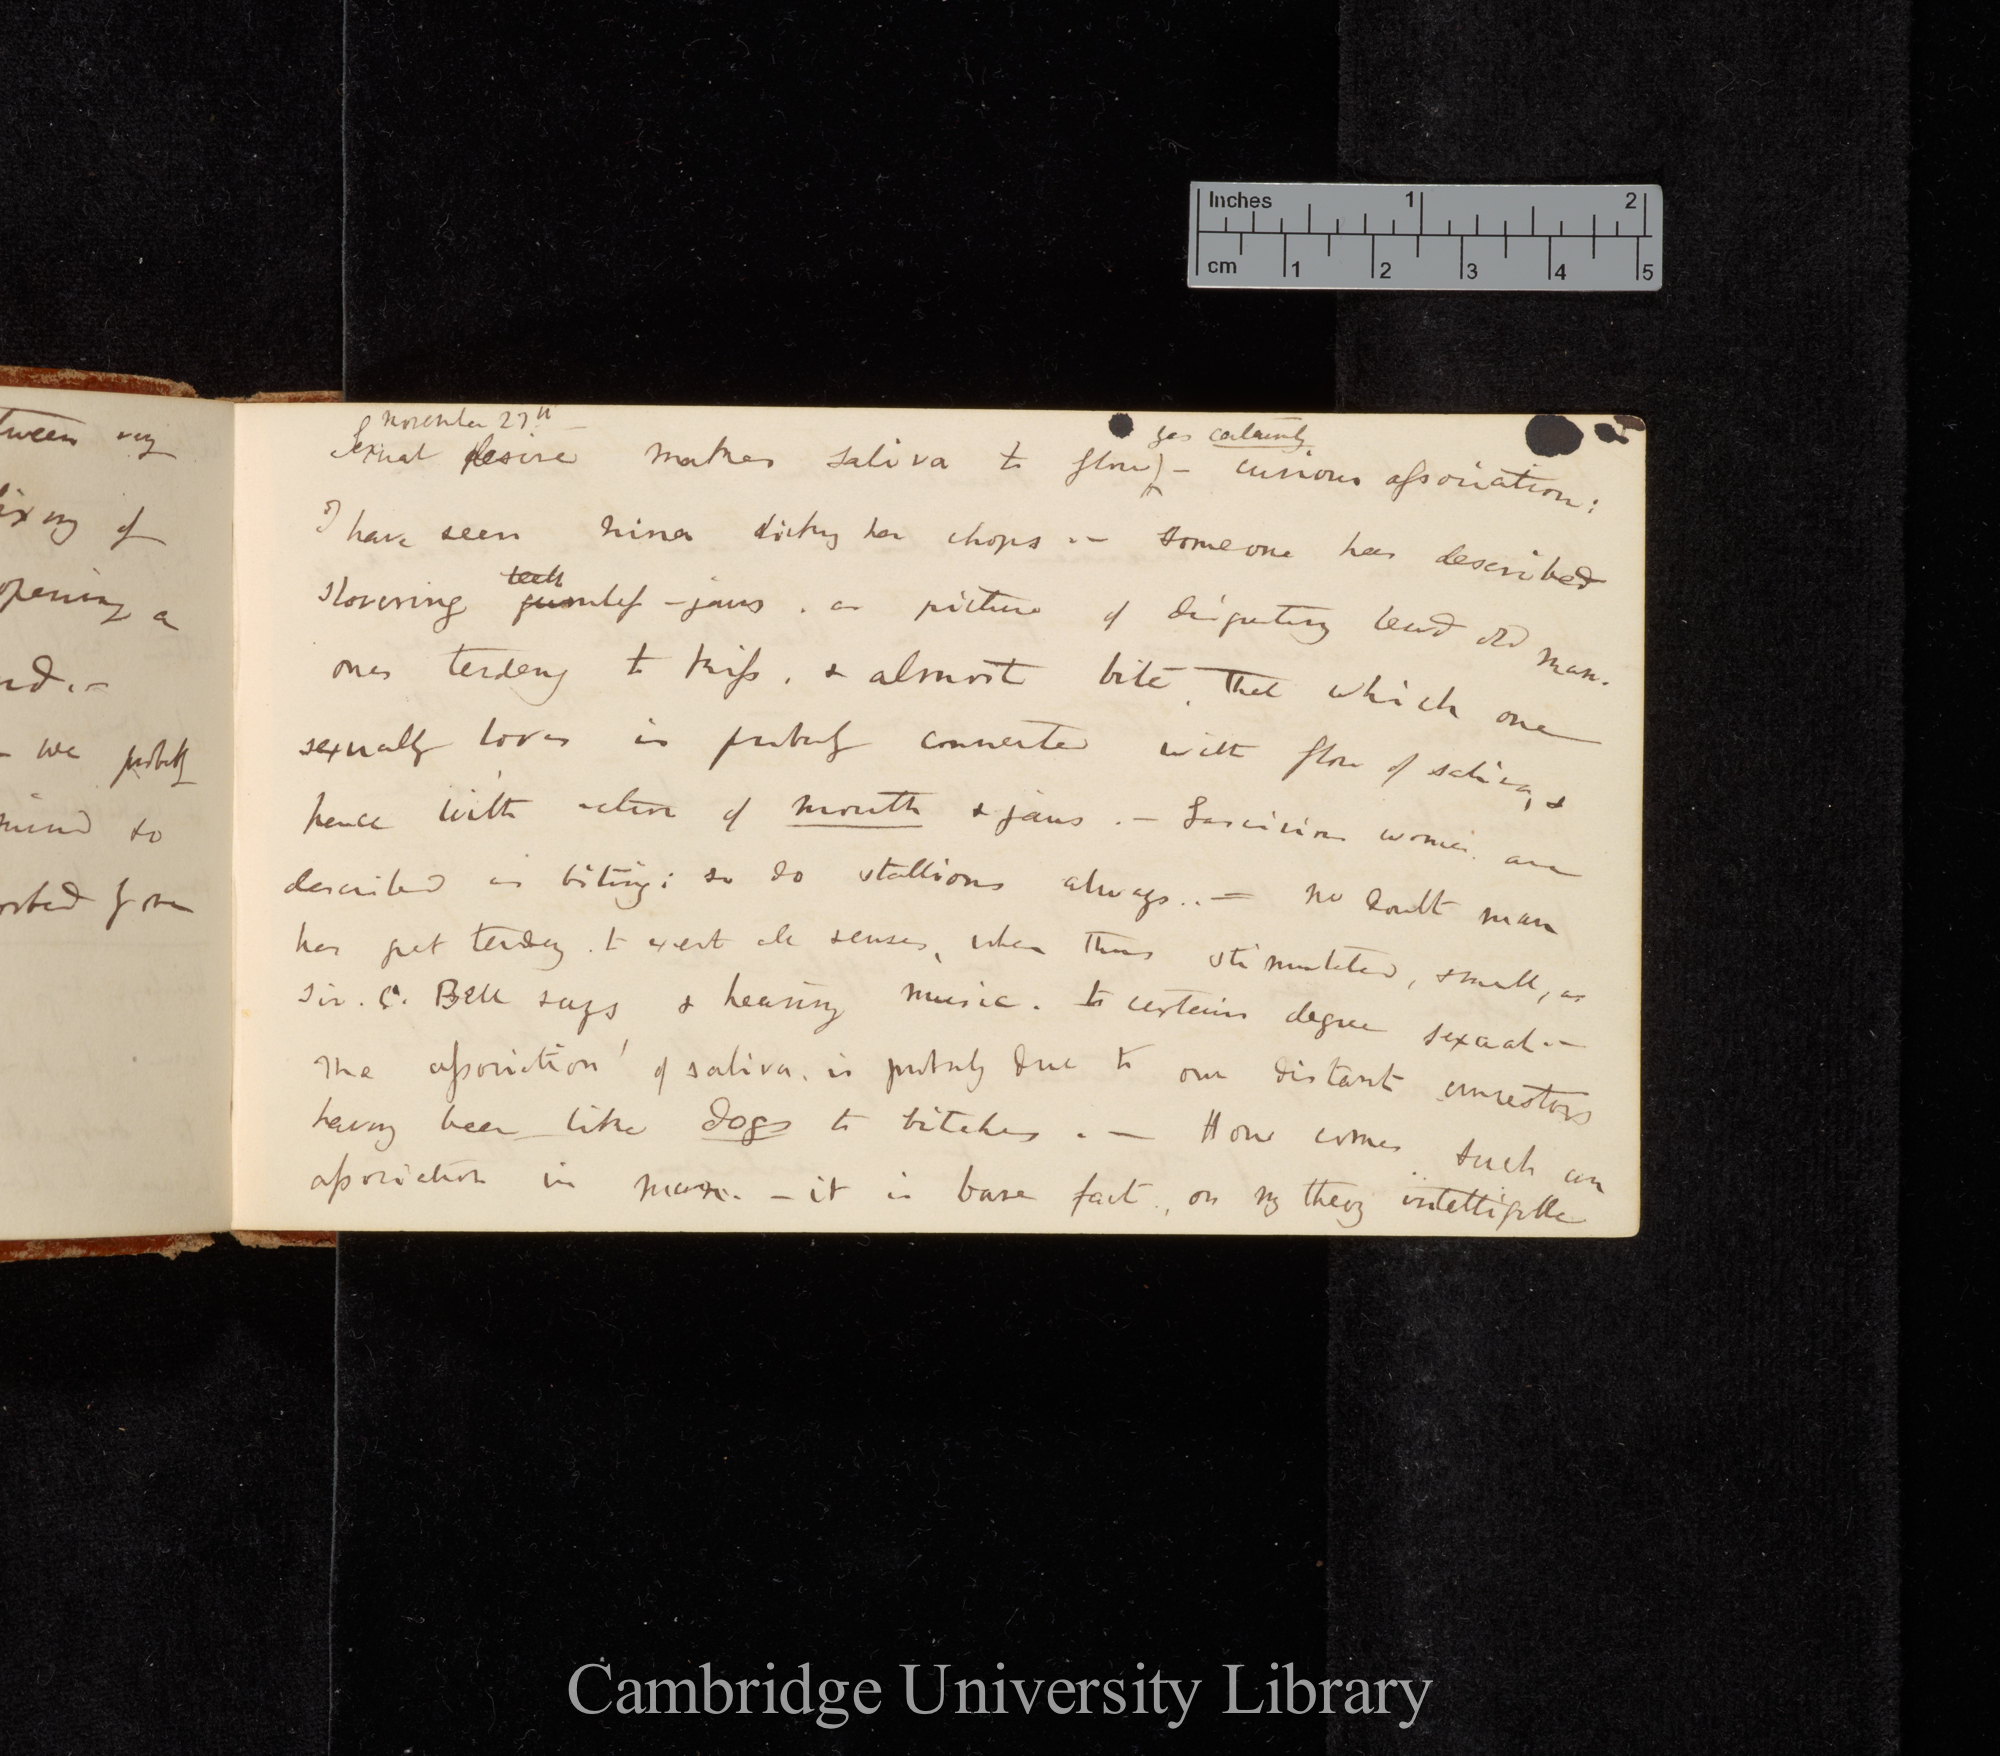 Inches 1 2
cm 1 2 3 4 5
tween my
ixing of
opening a
nd.—
— we probably
mind so
orbed from
November 27th —
yes certainly
Sexual desire makes saliva to flow — curious association:
I have seen Nina licking her chops.— someone has described
teeth
slovering -jaws. as picture of disgusting lewd old man.
ones tendency to kiss, & almost bite, that which one
sexually loves is probably connected with flow of saliva, &
hence with action of mouth & jaws.— Lascivious women. are
described as biting: so do stallions always..— No doubt man
has great tendency to exert all senses, when thus stimulated, smell, as
Sir. C. Bell says & hearing music. to certain degree sexual.—
The association of saliva. is probably due to our distant ancestors
having been like dogs to bitches.— How comes such an
association in man.—it is bare fact, on my theory intelligible
Cambridge University Library